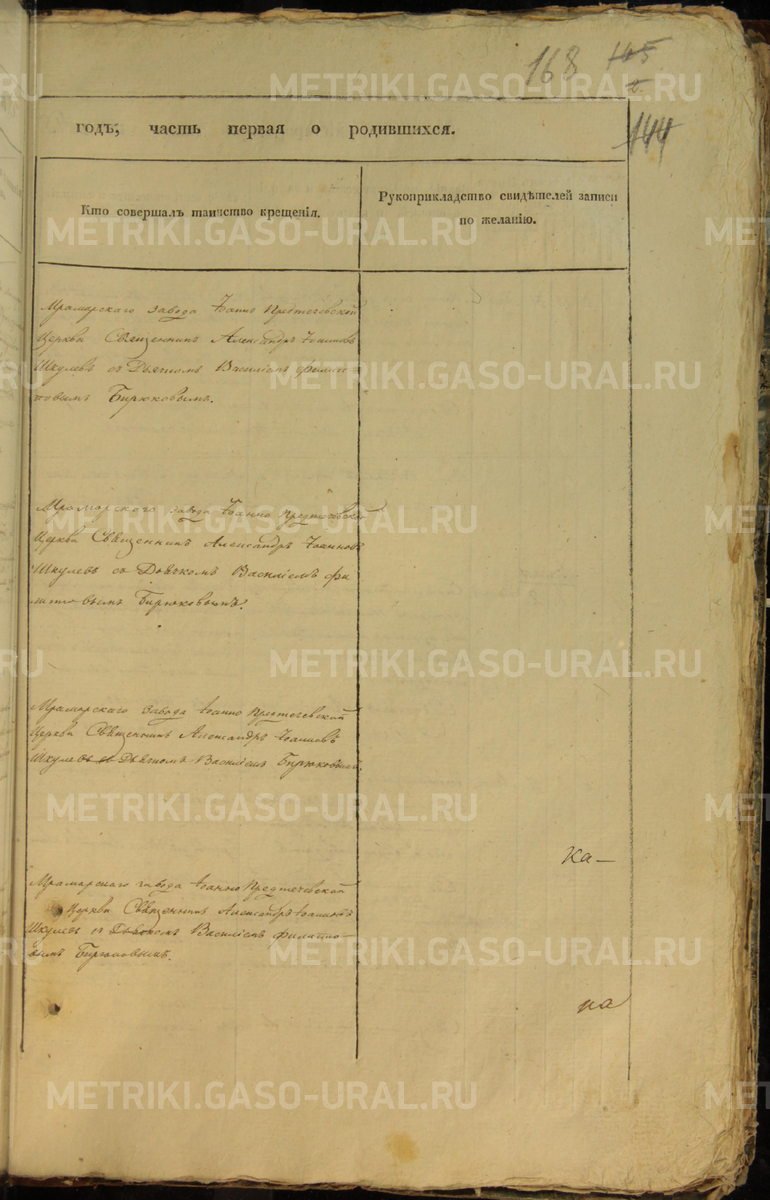 168 145
144
годъ, часть первая о родившихся.
Кто совершалъ таинство крещенія.
Рукоприкладство свидѣтелей записи
по желанію.
Мраморскаго завода Іоанно Предтечевской
Церкви Священникъ Александръ Іоанновъ
Шкулевъ съ Дьячкомъ Василіемъ Филип
повымъ Бирюковымъ.
Мраморскаго завода Іоанно Предтечевской
Церкви Священникъ Александръ Іоанновъ
Шкулевъ съ Дьячкомъ Василіемъ Фи
липповымъ Бирюковымъ.
Мраморскаго завода Іоанно Предтечевской
Церкви Священникъ Александръ Іоанновъ
Шкулевъ съ Дьячкомъ Василіемъ Бирюковымъ.
Ка-
Мраморскаго завода Іоанно Предтечевской
Церкви Священникъ Александръ Іоанновъ
Шкулевъ съ Дьячкомъ Василіемъ Филиппо-
вымъ Бирюковымъ.
METRIKI.GASO-URAL.RU